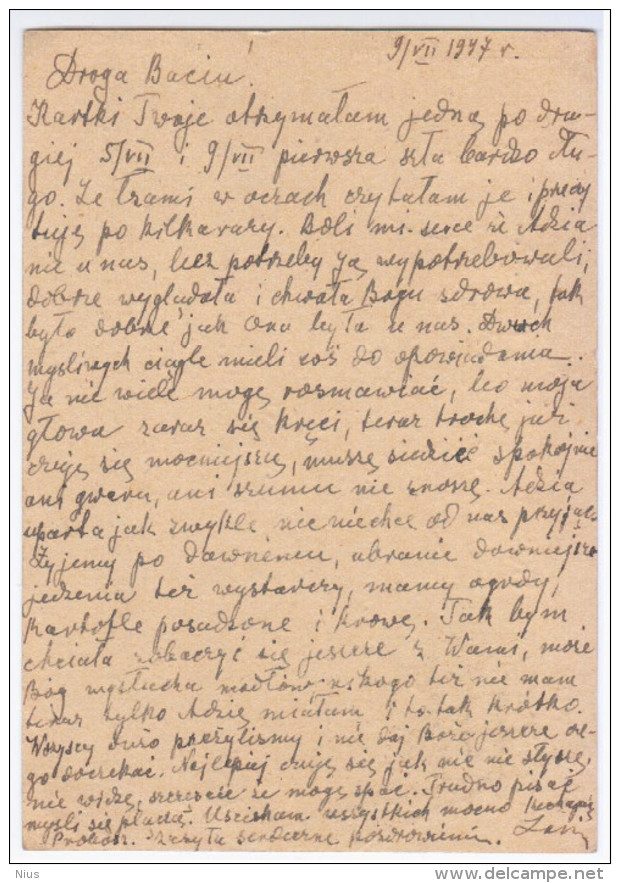 9/VII 1947 r.
Droga Baciu!
Kartki Twoje otrzymałam jedną po dru-
giej 5/VII i 9/VII pierwsza szła bardzo dłu-
go. Ze łzami w oczach czytałam je i
po kilka razy. Boli mi serce że Adzia
nie u nas, bez potrzeby Ją wypotrzebowali,
dobrze wyglądała i chwała Bogu zdrowa, tak
było dobrze jak Ona była u nas. Dwoch
myśliwych ciągle mieli coś do opowiadania.
Ja nie wiele mogę rozmawiać, bo moja
głowa zaraz się kręci, teraz trochę już
czuję się mocniejszą, muszę siedzieć spokojnie
ani gwaru, ani szumu nie znoszę. Adzia
uparta jak zwykle nic niechce od nas przyjąć.
Żyjemy po dawnemu, ubranie dawniejsze
jedzenia też wystarczy, mamy ogrody,
Kartofle posadzone i krowę. Tak bym
chciała zobaczyć się jeszcze z Wami, może
Bóg wysłucha modłów nikogo też nie mam
teraz tylko Adzię miałam i to tak krótko.
Wszyscy dużo przeżyliśmy i nie daj Boże jeszcze cze-
go doczekać. Najlepiej czuję się jak nic nie słyszę,
nie widzę, szczęście że mogę spać. Trudno pisać
myśli się plączą. Uściskam wszystkich mocno kochająca
Proboszcz zasyła serdeczne pozdrowienia.